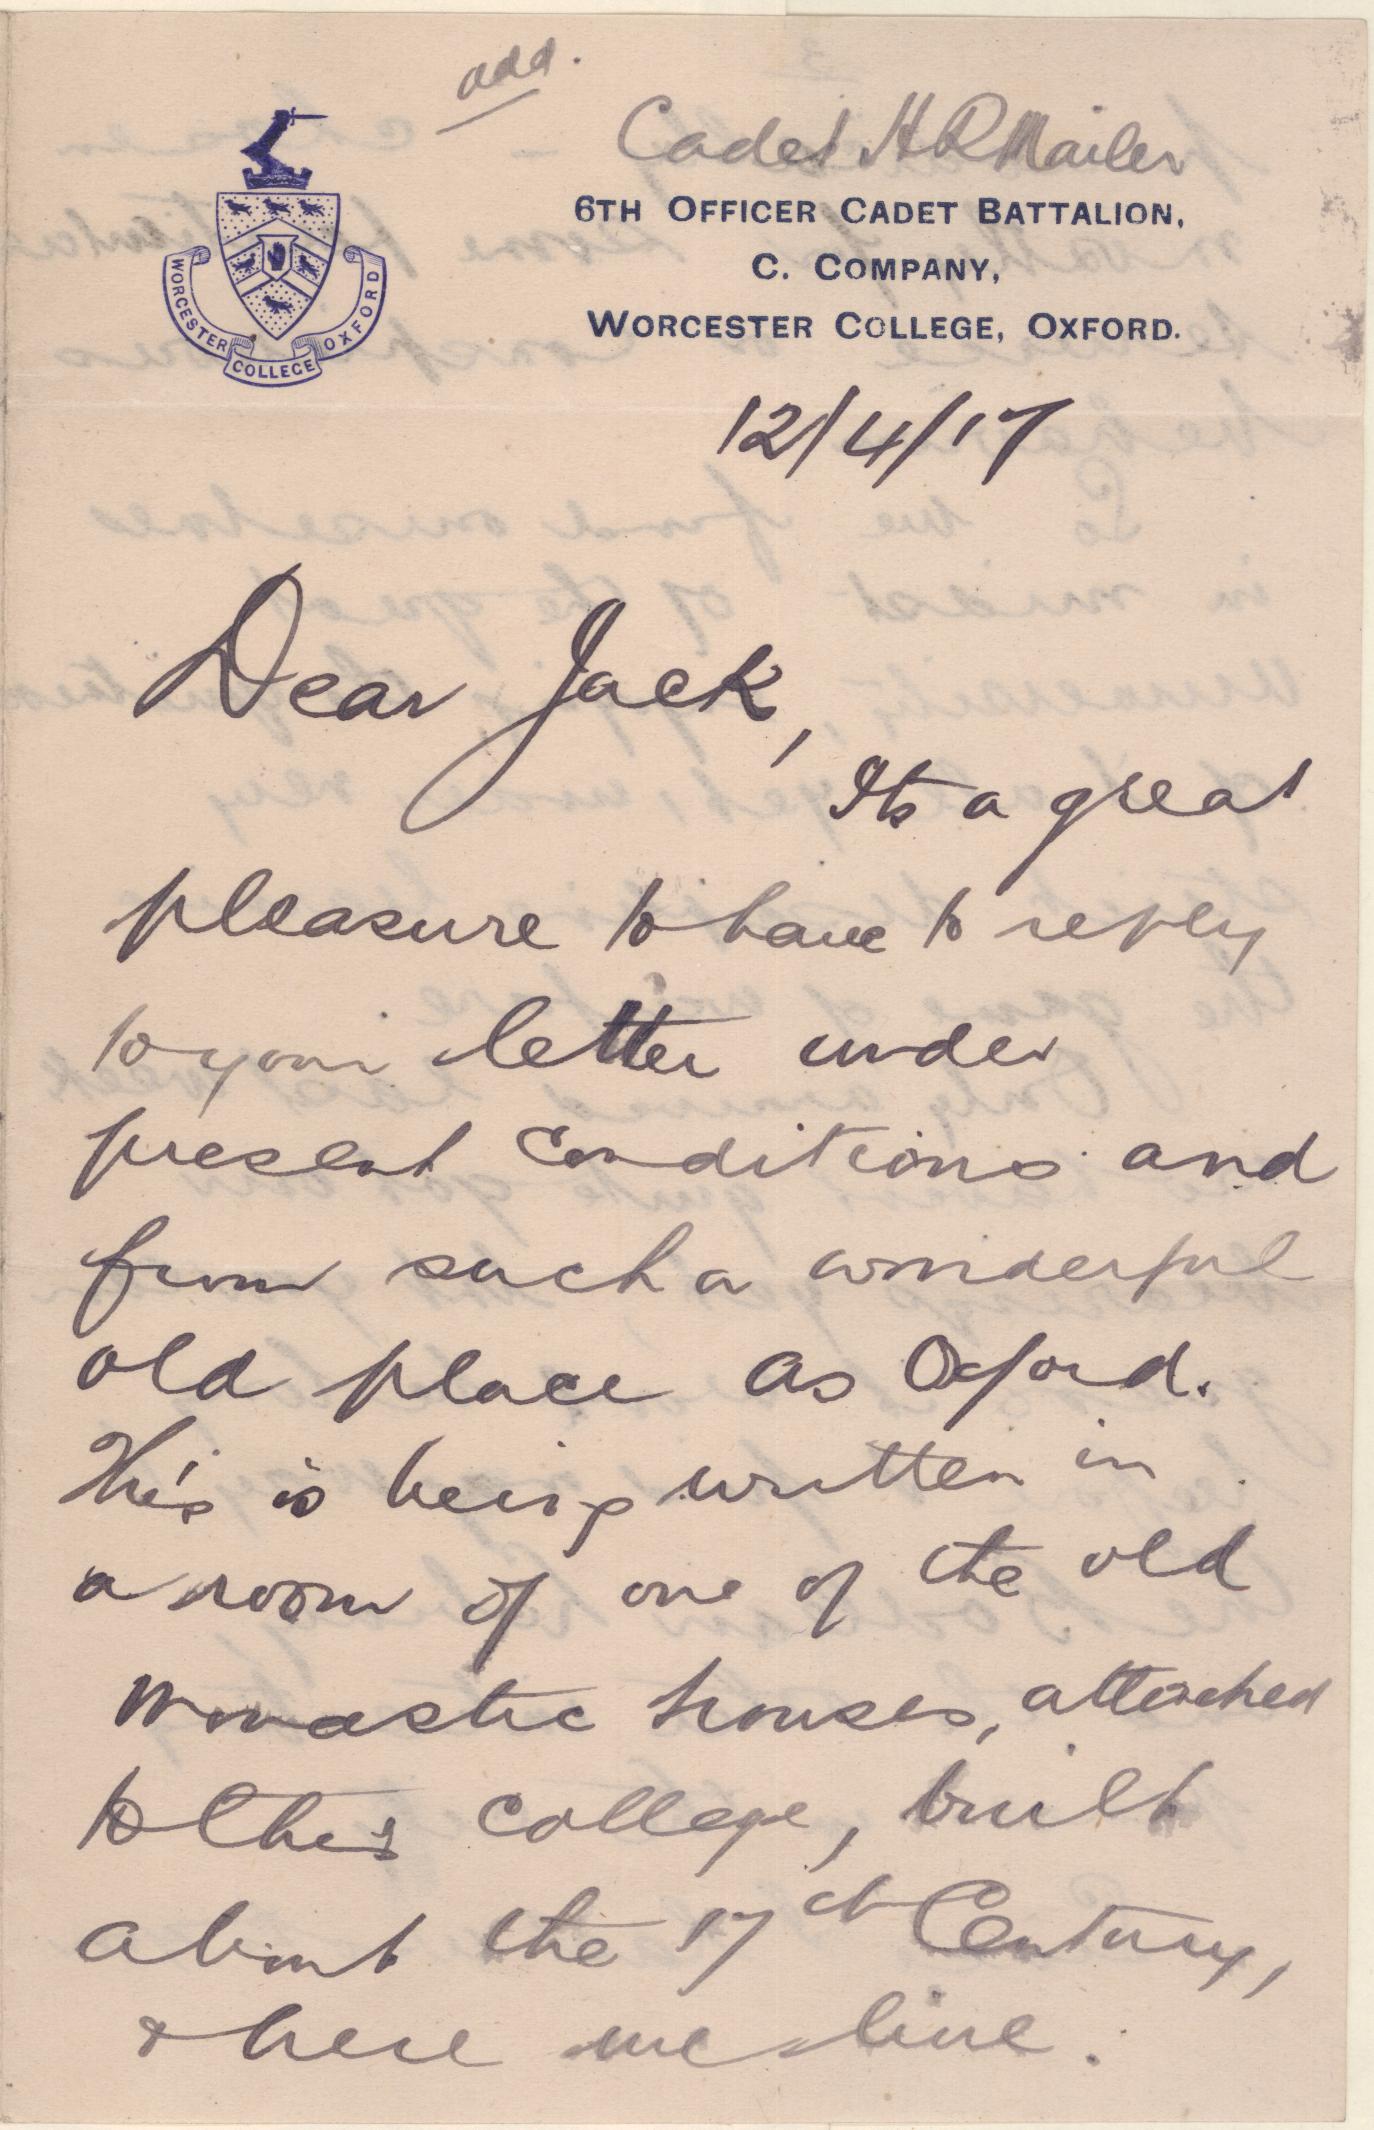 add.
Cadet H R Mailer
6TH OFFICER CADET BATTALION,
C. COMPANY,
WORCESTER COLLEGE, OXFORD.
WORCESTER COLLEGE OXFORD
12/4/17
Dear Jack,
Its a great
pleasure to have to reply
to your letter under
present conditions and
from such a wonderful
old place as Oxford.
This is being written in
a room of one of the old
monastic houses, attached
to this college, built
about the 17th Century,
& here we live.